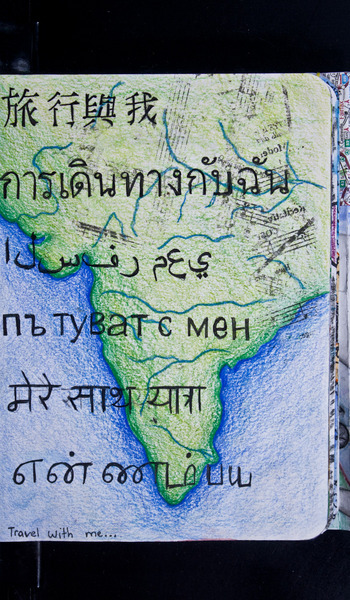 旅行與我
การเดินทางกับฉัน
ال سفر معي
пътуват с мен
मेरे साथ यात्रा
என் ணடம்பய
Travel with me...